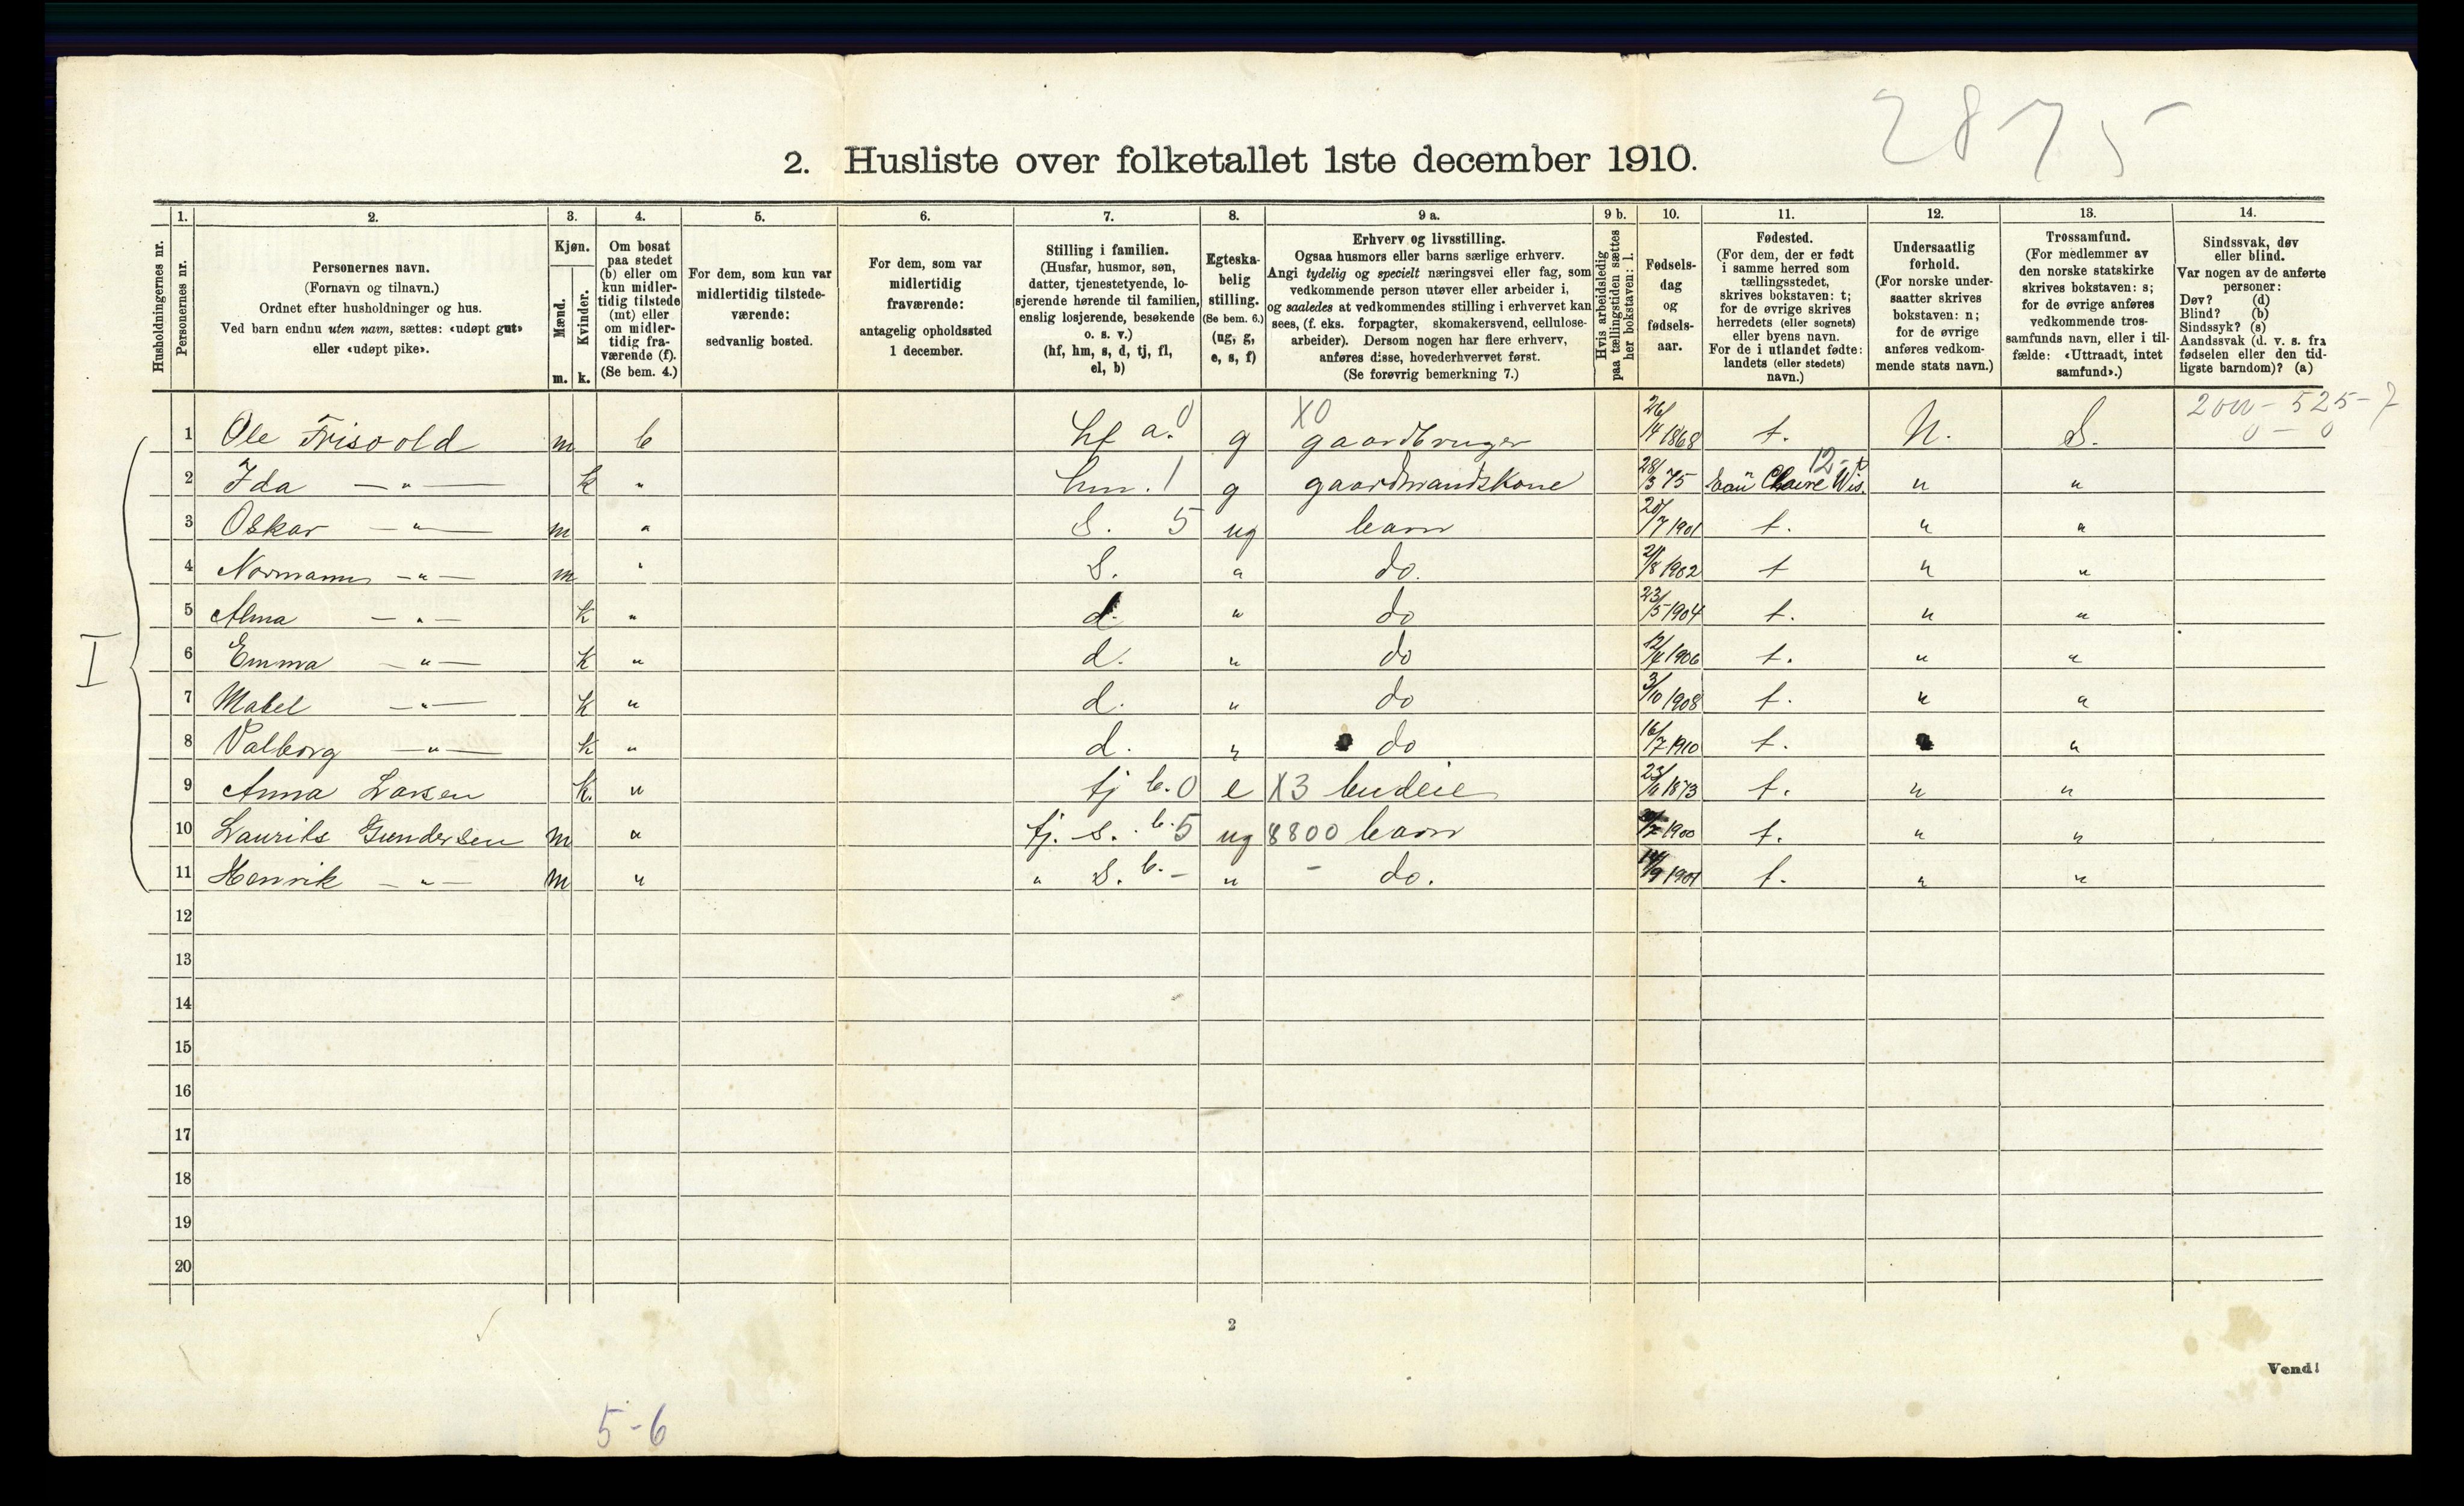 2875
2. Husliste over folketallet 1ste december 1910.
Husholdningernes nr.
1. Personernes nr.
2. Personernes navn.
(Fornavn og tilnavn.)
Ordnet efter husholdninger og hus.
Ved barn endnu uten navn, sættes: «udøpt gut»
eller «udøpt pike».
3. Kjøn.
Mænd. Kvinder.
m. k.
4. Om bosat
paa stedet
(b) eller om
kun midler-
tidig tilstede
(mt) eller
om midler-
tidig fra-
værende (f).
(Se bem. 4.)
5. For dem, som kun var
midlertidig tilstede-
værende:
sedvanlig bosted.
6. For dem, som var
midlertidig
fraværende:
antagelig opholdssted
1 december.
7. Stilling i familien.
(Husfar, husmor, søn,
datter, tjenestetyende, lo-
sjerende hørende til familien,
enslig losjerende, besøkende
o. s. v.)
(hf, hm, s, d, tj, fl,
el, b)
8. Egteska-
belig
stilling.
(Se bem. 6.)
(ug, g,
e, s, f)
9 a. Erhverv og livsstilling.
Ogsaa husmors eller barns særlige erhverv.
Angi tydelig og specielt næringsvei eller fag, som
vedkommende person utøver eller arbeider i,
og saaledes at vedkommendes stilling i erhvervet kan
sees, (f. eks. forpagter, skomakersvend, cellulose-
arbeider). Dersom nogen har flere erhverv,
anføres disse, hovederhvervet først.
(Se forøvrig bemerkning 7.)
9 b. Hvis arbeidsledig
paa tællingstiden sættes
her bokstaven: l.
10. Fødsels-
dag
og
fødsels-
aar.
11. Fødested.
(For dem, der er født
i samme herred som
tællingsstedet,
skrives bokstaven: t;
for de øvrige skrives
herredets (eller sognets)
eller byens navn.
For de i utlandet fødte:
landets (eller stedets)
navn.)
12. Undersaatlig
forhold.
(For norske under-
saatter skrives
bokstaven: n;
for de øvrige
anføres vedkom-
mende stats navn.)
13. Trossamfund.
(For medlemmer av
den norske statskirke
skrives bokstaven: s;
for de øvrige anføres
vedkommende tros-
samfunds navn, eller i til-
fælde: «Uttraadt, intet
samfund».)
14. Sindssvak, døv
eller blind.
Var nogen av de anførte
personer:
Døv? (d)
Blind? (b)
Sindssyk? (s)
Aandssvak (d. v. s. fra
fødselen eller den tid-
ligste barndom)? (a)
I
1 Ole Frisvold m b hf a. 0 g X0 gaardbruger 1868 t. N. S.
2 Ida —"— k " hm. 1 g gaardmandskone 28/3 75 Eau Claire Wis. 12 " "
3 Oskar —"— m " S. 5 ug barn 1901 t. " "
4 Normann —"— m " S. " do. 2/8 1902 t " "
5 Alma —"— k " d. " do 23/5 1904 t. " "
6 Emma —"— k " d. " do 1906 t. " "
7 Mabel —"— k " d. " do 3/10 1908 t. " "
8 Valborg —"— k " d. " do 16/7 1910 t. "
9 Anna Larsen K. " tj b. 0 e X3 budeie 1873 t. " "
10 Laurits Gundersen m " tj. s. b. 5 ug 8800 barn 1900 t. " "
11 Henrik —"— m " " s. b. - " - do. t. " "
12
13
14
15
16
17
18
19
20
2
Vend!
5-6